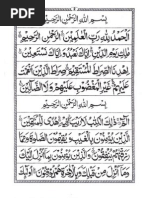 بِسْمِ اللهِ الرَّحْمٰنِ الرَّحِيْمِ
اَلْحَمْدُ لِلّٰهِ رَبِّ الْعٰلَمِيْنَ الرَّحْمٰنِ الرَّحِيْمِ
مٰلِكِ يَوْمِ الدِّيْنِ اِيَّاكَ نَعْبُدُ وَاِيَّاكَ نَسْتَعِيْنُ
اِهْدِنَا الصِّرَاطَ الْمُسْتَقِيْمَ صِرَاطَ الَّذِيْنَ اَنْعَمْتَ
عَلَيْهِمْ غَيْرِ الْمَغْضُوْبِ عَلَيْهِمْ وَلَا الضَّآلِّيْنَ
بِسْمِ اللهِ الرَّحْمٰنِ الرَّحِيْمِ
الٓمّٓ ذٰلِكَ الْكِتٰبُ لَا رَيْبَ فِيْهِ هُدًى لِّلْمُتَّقِيْنَ الَّذِيْنَ
يُؤْمِنُوْنَ بِالْغَيْبِ وَيُقِيْمُوْنَ الصَّلٰوةَ وَمِمَّا
رَزَقْنٰهُمْ يُنْفِقُوْنَ وَالَّذِيْنَ يُؤْمِنُوْنَ بِمَآ اُنْزِلَ اِلَيْكَ
وَمَآ اُنْزِلَ مِنْ قَبْلِكَ وَبِالْاٰخِرَةِ هُمْ يُوْقِنُوْنَ اُولٰٓئِكَ